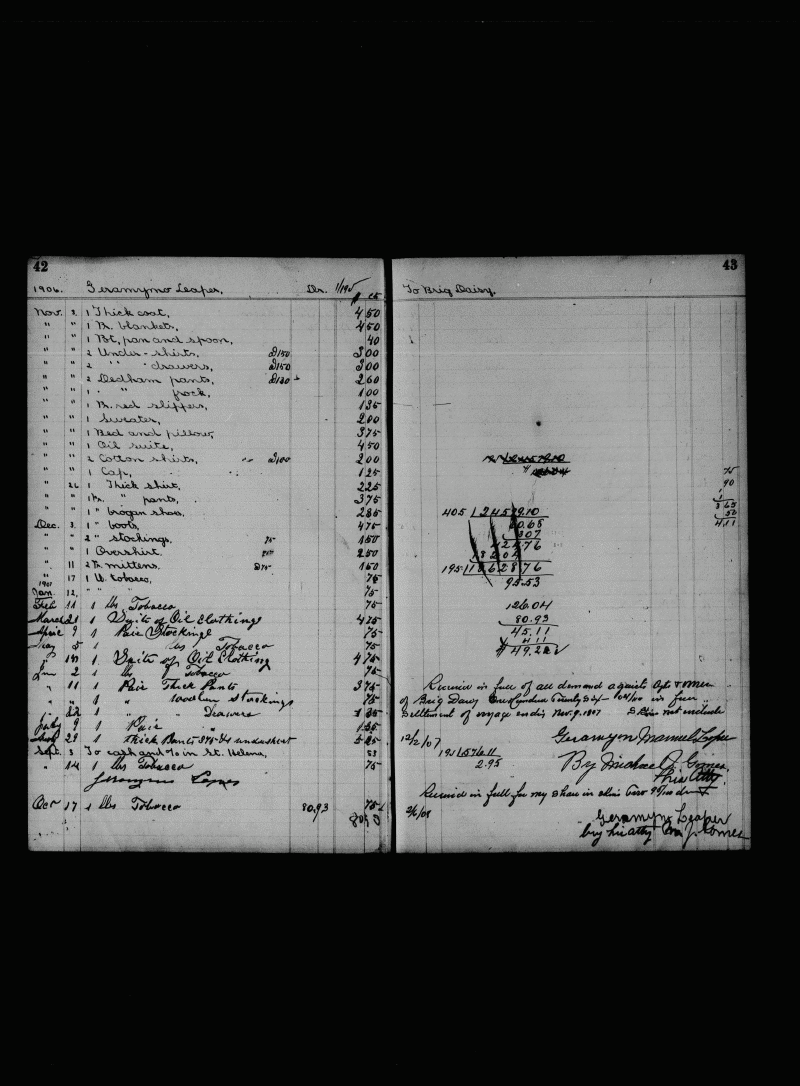 42
1906. Geramymo Leaper, Dr. 1/195
$ cts
Nov. 2 1 Thick coat, 450
" " 1 Pr. blankets, 450
" " 1 Pot, pan and spoon, 40
" " 2 Under-shirts, @150 300
" " 2 " drawers, @150 300
" " 2 Dedham pants, @130 260
" " 1 " frock, 100
" " 1 Pr. red slippers, 135
" " 1 Sweater, 200
" " 1 Bed and pillow, 375
" " 1 Oil suite, 450
" " 2 Cotton shirts, @100 200
" " 1 Cap, 125
" 26 1 Thick shirt, 225
" " 1 Pr. " pants, 375
" " 1 " brogan shoes, 285
Dec. 3 1 " boots, 475
" " 2 " stockings, 75 150
" " 1 Overshirt, 250
" 11 2 Pr. mittens, @75 150
" 17 1 lb. tobacco, 75
1907
Jan. 12, " " " 75
Feb 11 1 lbs Tobacco 75
March 21 1 Suits of Oil Clothing 475
April 9 1 Pair Stockings 75
May 5 1 lbs Tobacco 75
" 17 1 Suits of Oil Clothing 475
Jun 2 1 lbs Tobacco 75
" 11 1 Pair Thick Pants 375
" " 1 " woolen Stockings 75
" 22 1 " Drawers 135
July 9 1 Pair " 135
28 1 Thick Pants undershirt 525
Sept. 3 To cash in St. Helena, 53
" 14 1 lbs Tobacco 75
Jeronymo Lopes
Oct 17 1 lbs Tobacco 80.93 75
8093
43
To Brig Daisy.
75
90
365
50
4.11
405 | 124529.10
307
124.76
195 | 186 28 76
95.53
126.04
80.93
45.11
4 11
$ 49.22
Received in full of all demand against Agts & owners
of Brig Daisy in full
Settlement of voyage ending Nov. 9. 1907 not include
12/2/07 Geramyon Manuel Lope
195 | 576.11
2.95
By Michael J. Gomes
his Atty.
Received in full for my share in
2/6/08
Geramymo Leaper
by his atty M. J. Gomes